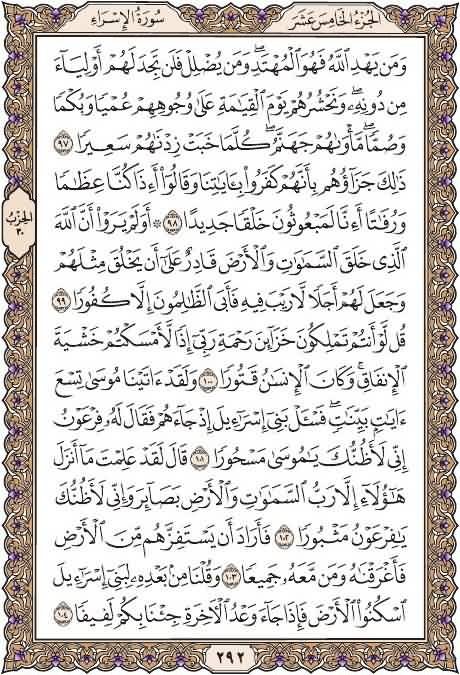 سُورَةُ الإِسْرَاءِ
الجُزْءُ الخَامِسَ عَشَرَ
وَمَن يَهْدِ ٱللَّهُ فَهُوَ ٱلْمُهْتَدِ ۖ وَمَن يُضْلِلْ فَلَن تَجِدَ لَهُمْ أَوْلِيَآءَ
مِن دُونِهِۦ ۖ وَنَحْشُرُهُمْ يَوْمَ ٱلْقِيَٰمَةِ عَلَىٰ وُجُوهِهِمْ عُمْيًا وَبُكْمًا
وَصُمًّا ۖ مَّأْوَىٰهُمْ جَهَنَّمُ ۖ كُلَّمَا خَبَتْ زِدْنَٰهُمْ سَعِيرًا ٩٧
ذَٰلِكَ جَزَآؤُهُم بِأَنَّهُمْ كَفَرُوا۟ بِـَٔايَٰتِنَا وَقَالُوٓا۟ أَءِذَا كُنَّا عِظَٰمًا
وَرُفَٰتًا أَءِنَّا لَمَبْعُوثُونَ خَلْقًا جَدِيدًا ٩٨ ۞ أَوَلَمْ يَرَوْا۟ أَنَّ ٱللَّهَ
ٱلَّذِى خَلَقَ ٱلسَّمَٰوَٰتِ وَٱلْأَرْضَ قَادِرٌ عَلَىٰٓ أَن يَخْلُقَ مِثْلَهُمْ
وَجَعَلَ لَهُمْ أَجَلًا لَّا رَيْبَ فِيهِ فَأَبَى ٱلظَّٰلِمُونَ إِلَّا كُفُورًا ٩٩
قُل لَّوْ أَنتُمْ تَمْلِكُونَ خَزَآئِنَ رَحْمَةِ رَبِّىٓ إِذًا لَّأَمْسَكْتُمْ خَشْيَةَ
ٱلْإِنفَاقِ ۚ وَكَانَ ٱلْإِنسَٰنُ قَتُورًا ١٠٠ وَلَقَدْ ءَاتَيْنَا مُوسَىٰ تِسْعَ
ءَايَٰتٍۭ بَيِّنَٰتٍ ۖ فَسْـَٔلْ بَنِىٓ إِسْرَٰٓءِيلَ إِذْ جَآءَهُمْ فَقَالَ لَهُۥ فِرْعَوْنُ
إِنِّى لَأَظُنُّكَ يَٰمُوسَىٰ مَسْحُورًا ١٠١ قَالَ لَقَدْ عَلِمْتَ مَآ أَنزَلَ
هَٰٓؤُلَآءِ إِلَّا رَبُّ ٱلسَّمَٰوَٰتِ وَٱلْأَرْضِ بَصَآئِرَ وَإِنِّى لَأَظُنُّكَ
يَٰفِرْعَوْنُ مَثْبُورًا ١٠٢ فَأَرَادَ أَن يَسْتَفِزَّهُم مِّنَ ٱلْأَرْضِ
فَأَغْرَقْنَٰهُ وَمَن مَّعَهُۥ جَمِيعًا ١٠٣ وَقُلْنَا مِنۢ بَعْدِهِۦ لِبَنِىٓ إِسْرَٰٓءِيلَ
ٱسْكُنُوا۟ ٱلْأَرْضَ فَإِذَا جَآءَ وَعْدُ ٱلْءَاخِرَةِ جِئْنَا بِكُمْ لَفِيفًا ١٠٤
الحِزْبُ
٣٠
٢٩٢